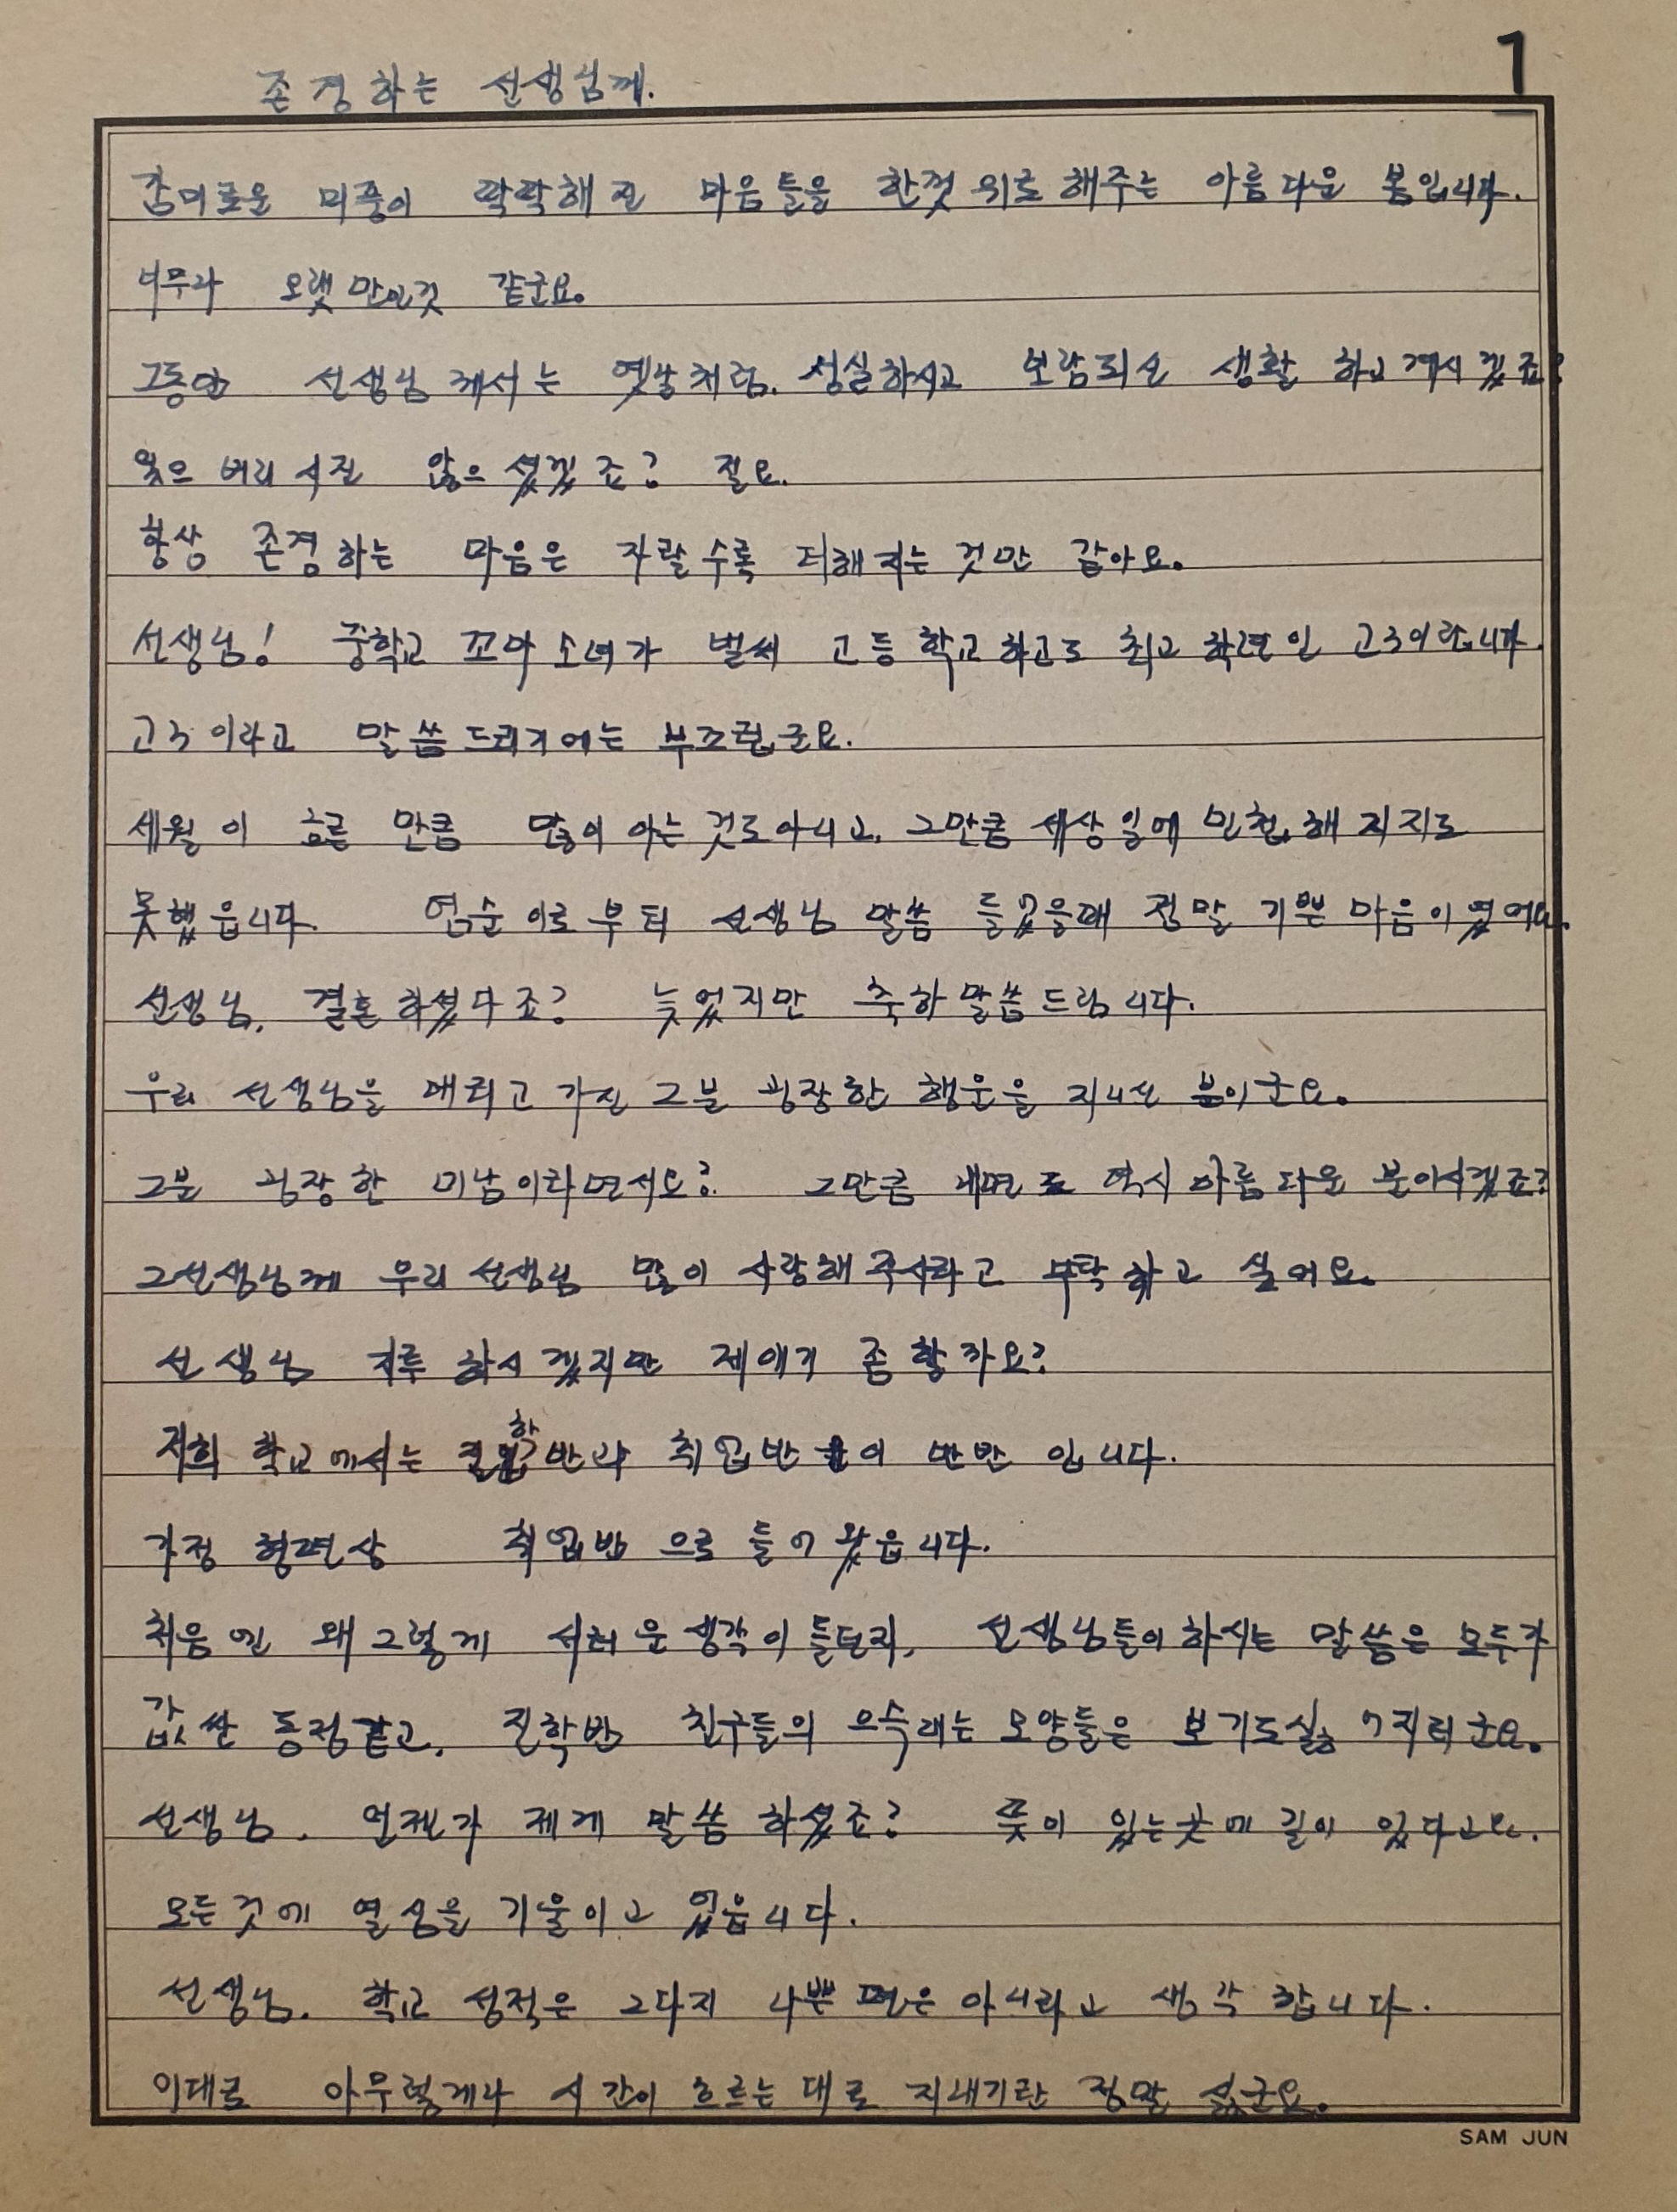 1
존경하는 선생님께.
감미로운 미풍이 팍팍해진 마음들을 한껏 위로해주는 아름다운 봄입니다.
너무나 오랫만인것 같군요.
그동안 선생님께서는 옛날처럼. 성실하시고 보람되신 생활 하고계시겠죠?
잊으버리시진 않으셨겠죠? 절요.
항상 존경하는 마음은 자랄수록 더해지는 것만 같아요.
선생님! 중학교 꼬마소녀가 벌써 고등학교하고도 최고 학년인 고3이랍니다.
고3이라고 말씀드리기에는 부끄럽군요.
세월이 흐른 만큼 많이 아는 것도아니고, 그만큼 세상일에 민첩해지지도
못했읍니다. 연순이로부터 선생님 말씀 들었을때 정말 기쁜 마음이였어요.
선생님. 결혼하셨다죠? 늦었지만 축하말씀드립니다.
우리 선생님을 데리고 가신 그분 굉장한 행운을 지니신 분이군요.
그분 굉장한 미남이라면서요? 그만큼 내면도 역시 아름다운 분이시겠죠?
그선생님께 우리선생님 많이 사랑해주시라고 부탁하고 싶어요.
선생님 지루하시겠지만 제얘기 좀할까요?
저희 학교에서는 진학반과 취업반이 반반 입니다.
가정 형편상 취업반으로 들어왔읍니다.
처음엔 왜그렇게 서러운생각이들던지, 선생님들이하시는 말씀은 모두가
값싼 동정같고, 진학반 친구들의 으슥대는 모양들은 보기도싫어지더군요.
선생님. 언젠가 제게 말씀하셨죠? 뜻이 있는곳에 길이 있다고요.
모든것에 열심을 기울이고 있읍니다.
선생님. 학교 성적은 그다지 나쁜편은 아니라고 생각합니다.
이대로 아무렇게나 시간이 흐르는대로 지내기란 정말 싫군요.
SAM JUN